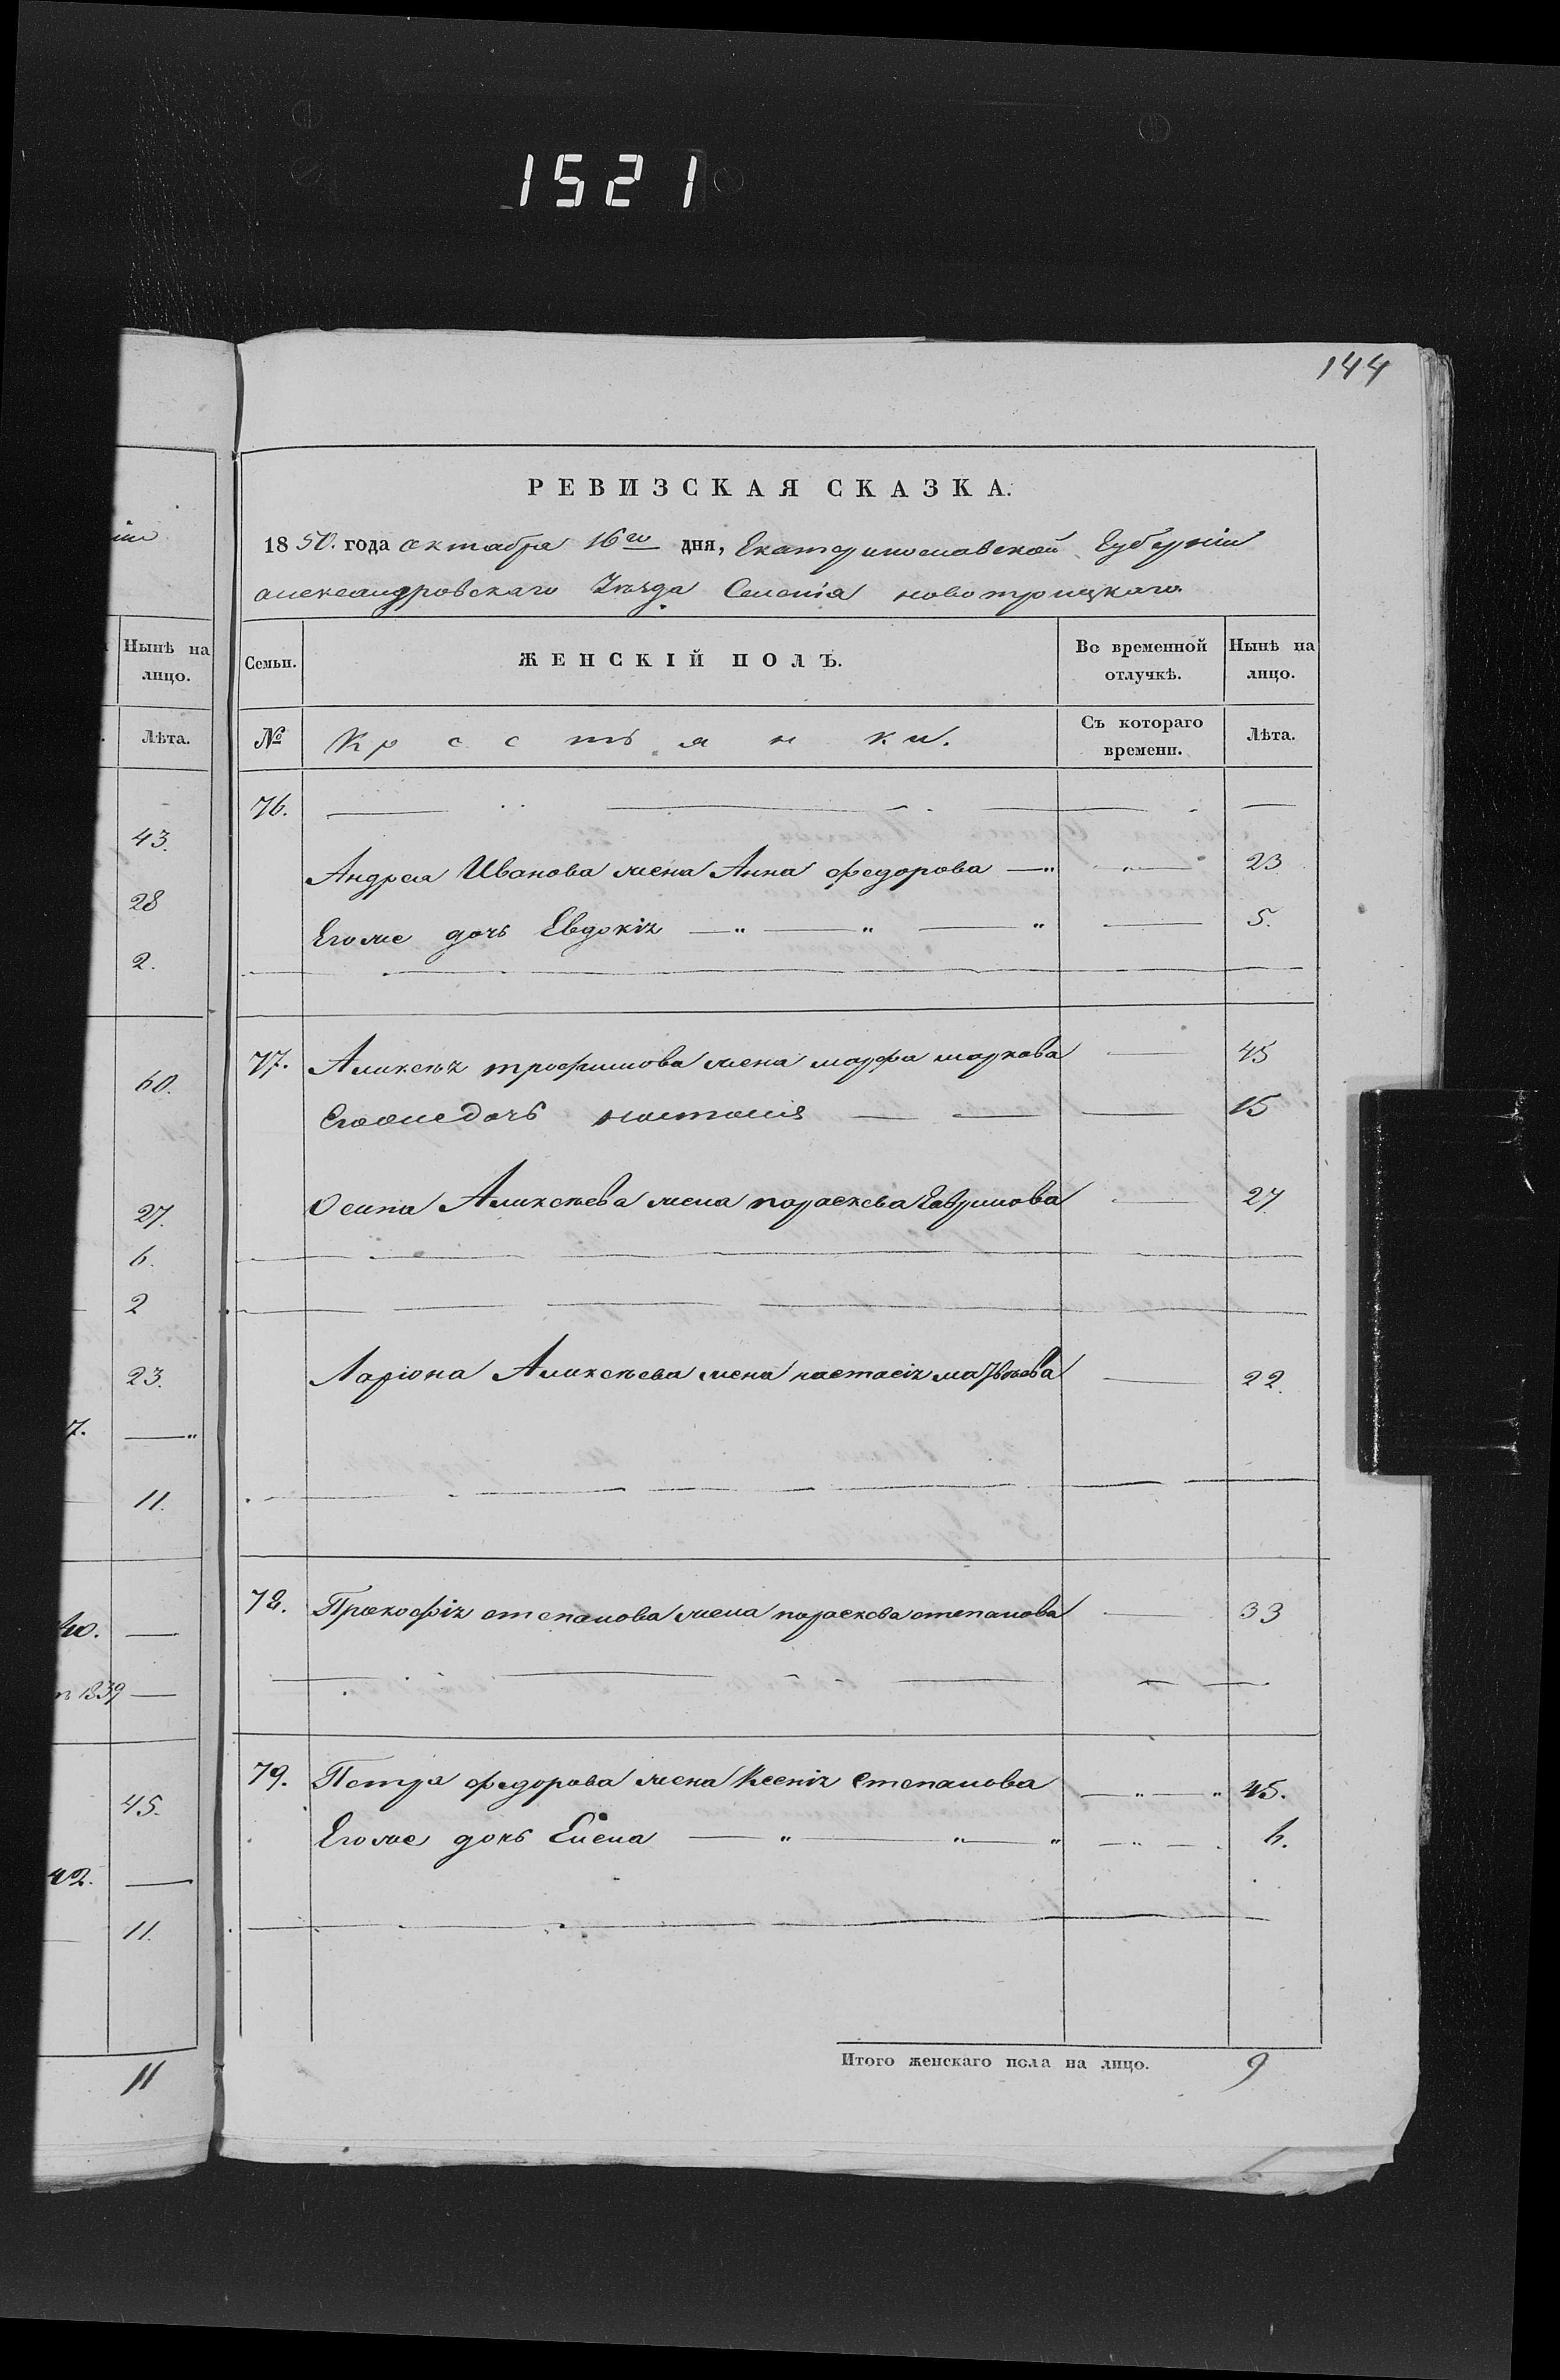 1521
144
РЕВИЗСКАЯ СКАЗКА.
1850. года октября 16го дня, Екатеринославской Губерніи
александровскаго Уѣзда Селенія новотроицкаго
Семьи. ЖЕНСКІЙ ПОЛЪ. Во временной отлучкѣ. Нынѣ на лицо.
№ Крестьянки. Съ котораго времени. Лѣта.
76.
Андрея Иванова жена Анна федорова 23
Егоже дочь Евдокія 5.
77. Аликсѣя трофимова жена марфа маркова 45
Егоже дочь настасія 15
Осипа Аликсѣева жена пораскева Гаврилова 27
Ларіона Аликсѣева жена настасія матвѣева 22.
78. Прокофія степанова жена пораскева степанова 33
79. Петра федорова жена Ксенія Степанова 45.
Егоже дочь Елена 6.
Итого женскаго пола на лицо. 9
Нынѣ на лицо.
Лѣта.
43.
28
2.
60.
27.
6.
2
23.
7.
11.
40.
1839
45.
42.
11.
11